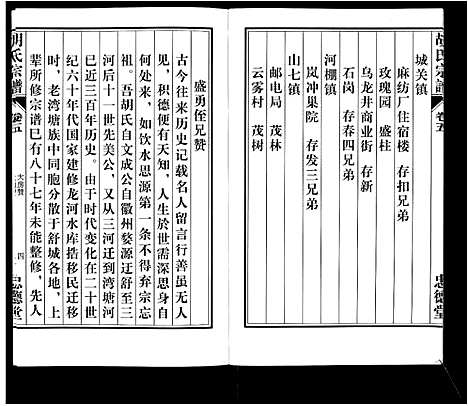 胡氏宗譜
卷五
忠德堂
城关镇
麻纺厂住宿楼 存扣兄弟
玫瑰园 盛柱
乌龙井商业街 存新
石岗 存春四兄弟
岚冲果院 存发三兄弟
河棚镇
山七镇
邮电局 茂林
云雾村 茂树
盛勇侄兄赞
古今往来历史记载名人留言行善虽无人
见，积德便有天知，人生於世需深思身自
何处来，如饮水思源第一条不得弃宗忘
祖。吾胡氏自文成公自徽州婺源迁舒至三
河后十一世先美公，又从三河迁到湾塘河
已近三百年历史。由于时代变化在二十世
纪六十年代国家建修龙河水库揩移民迁移
时，老湾塘族中同胞分散于舒城各地，上
辈所修宗谱已有八十七年未能整修，先人
胡氏宗譜
卷五
大房赞
四
忠德堂